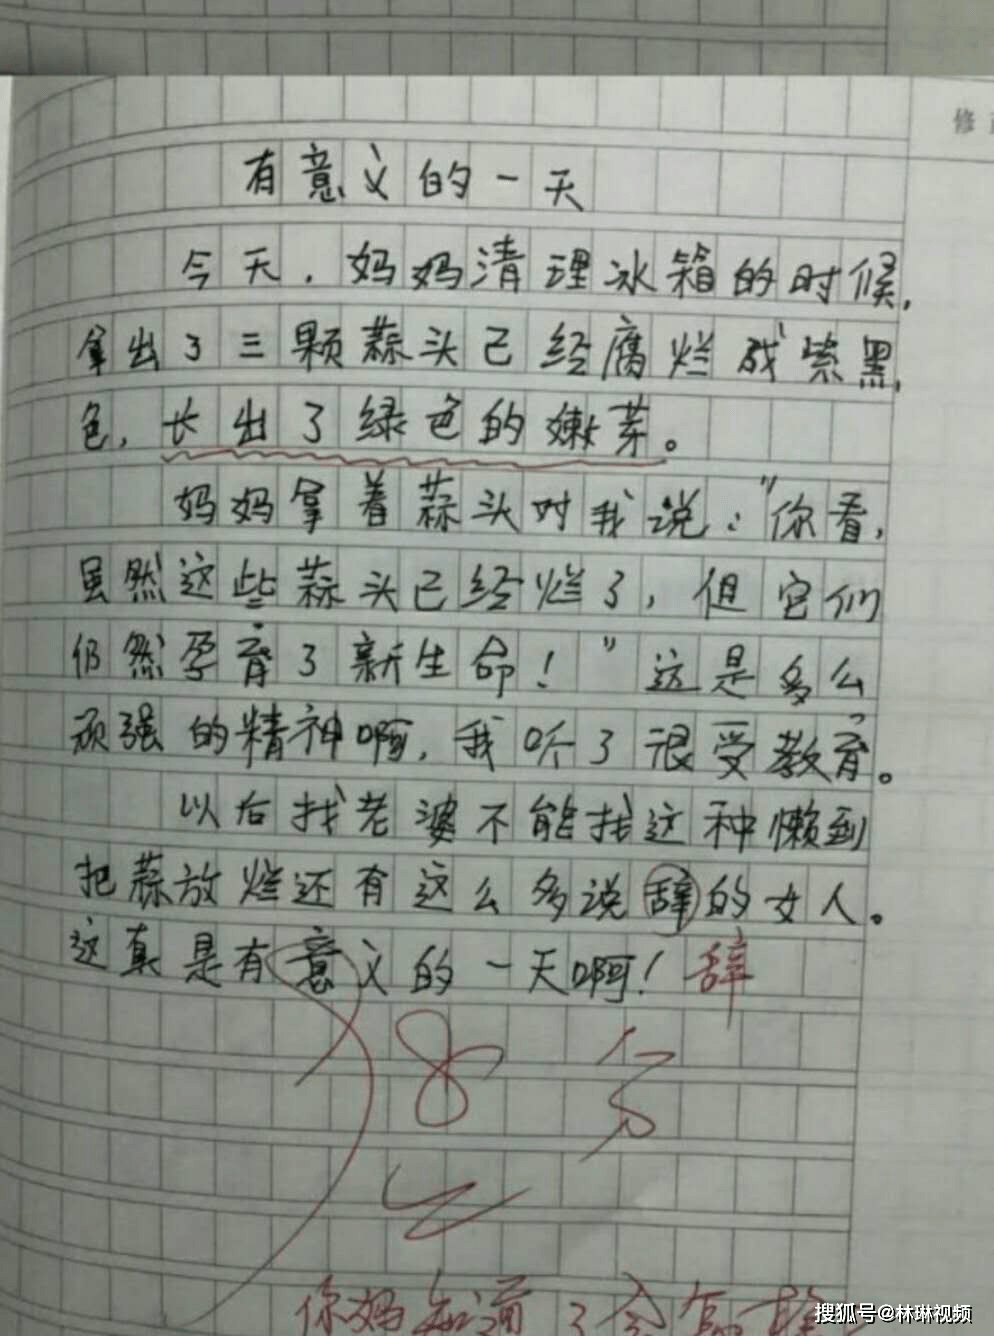 修
有意义的一天
今天，妈妈清理冰箱的时候，
拿出了三颗蒜头已经腐烂成紫黑
色，长出了绿色的嫩芽。
妈妈拿着蒜头对我说："你看，
虽然这些蒜头已经烂了，但它们
仍然孕育了新生命！"这是多么
顽强的精神啊，我听了很受教育。
以后找老婆不能找这种懒到
把蒜放烂还有这么多说辞的女人。
这真是有意义的一天啊！辞
98分
你妈知道了会怎
搜狐号@林琳视频